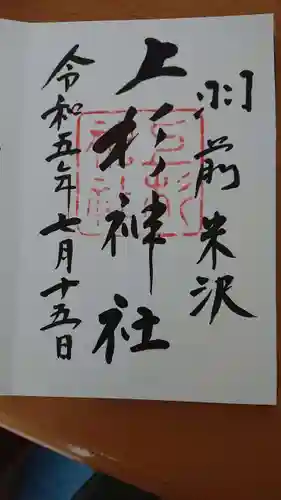 羽前米沢
上杉神社
令和五年七月十五日